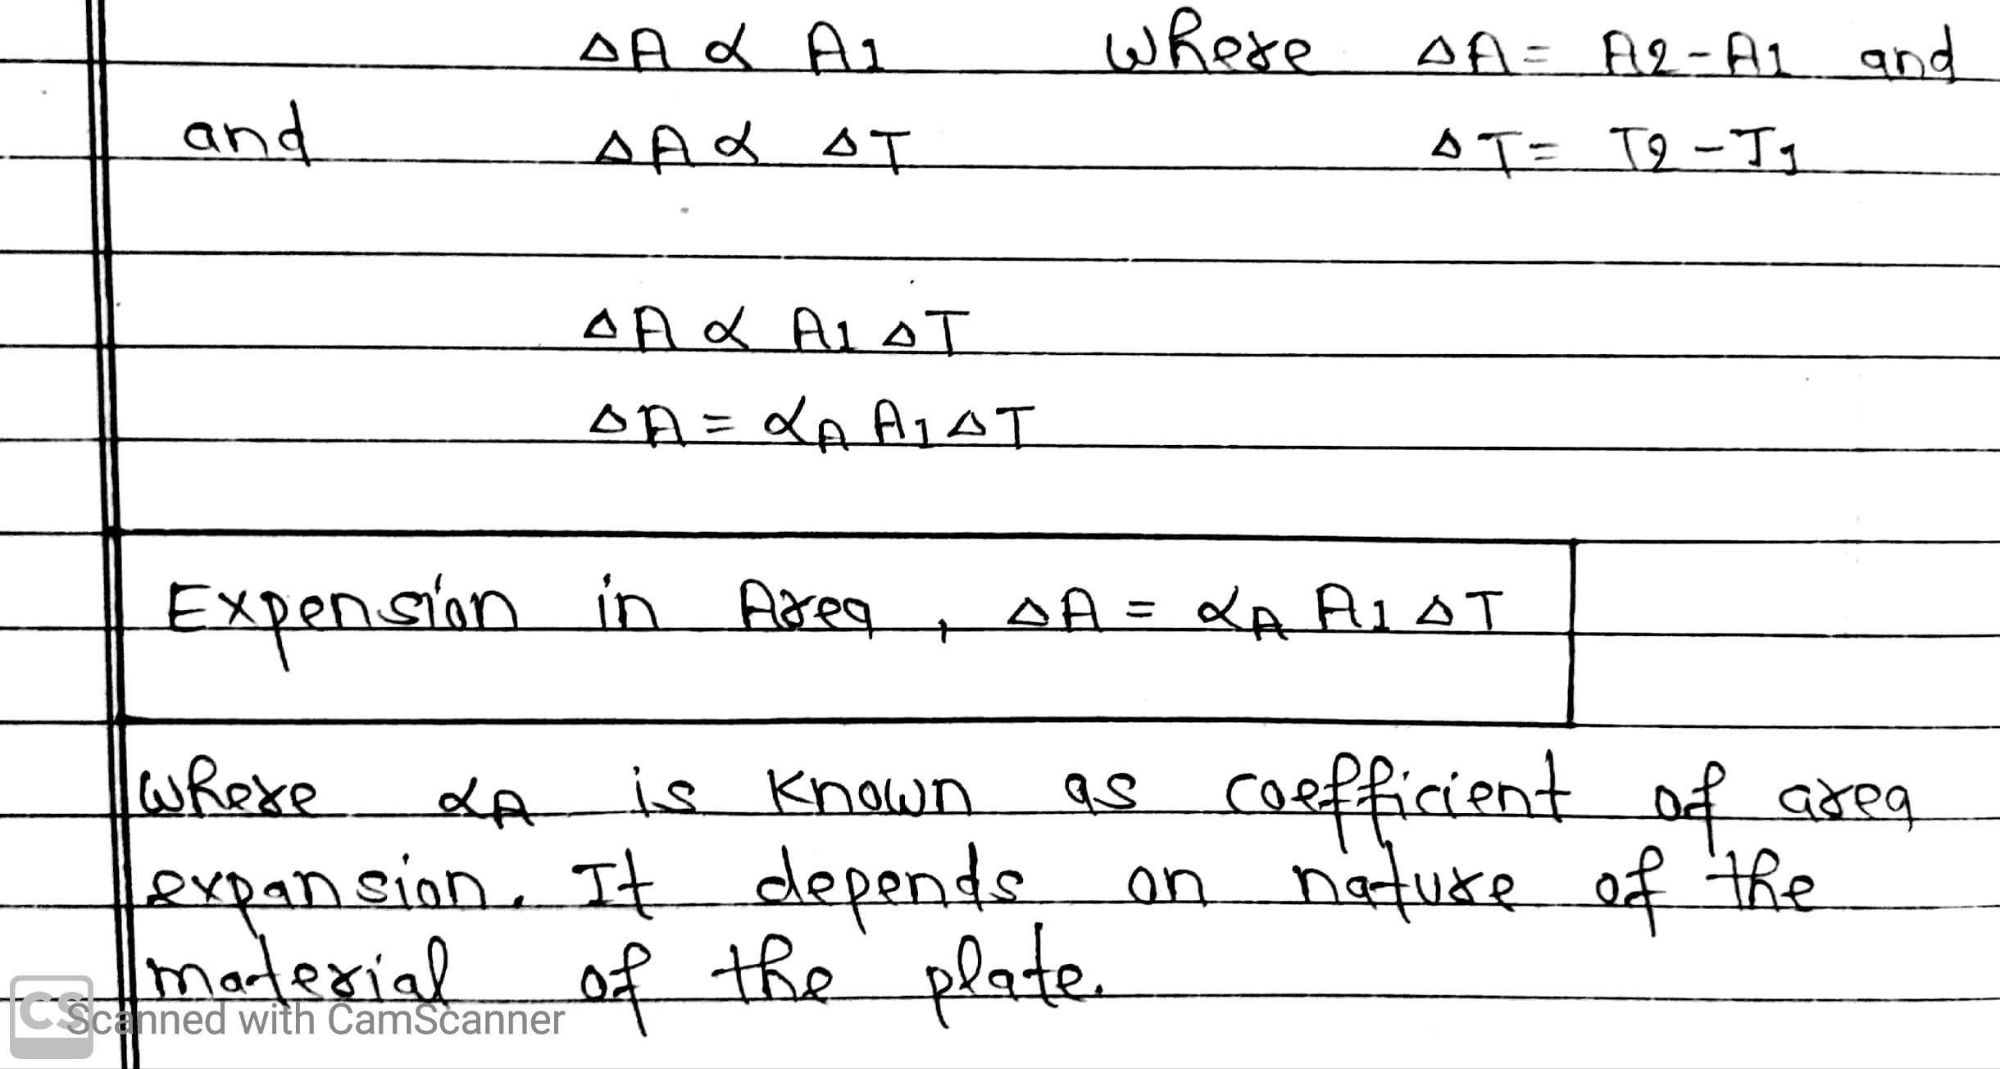 ΔA α A1 where ΔA = A2 - A1 and
and ΔA α ΔT ΔT = T2 - T1
ΔA α A1 ΔT
ΔA = αA A1 ΔT
Expension in Area, ΔA = αA A1 ΔT
where αA is known as coefficient of area
expansion. It depends on nature of the
material of the plate.
CS Scanned with CamScanner